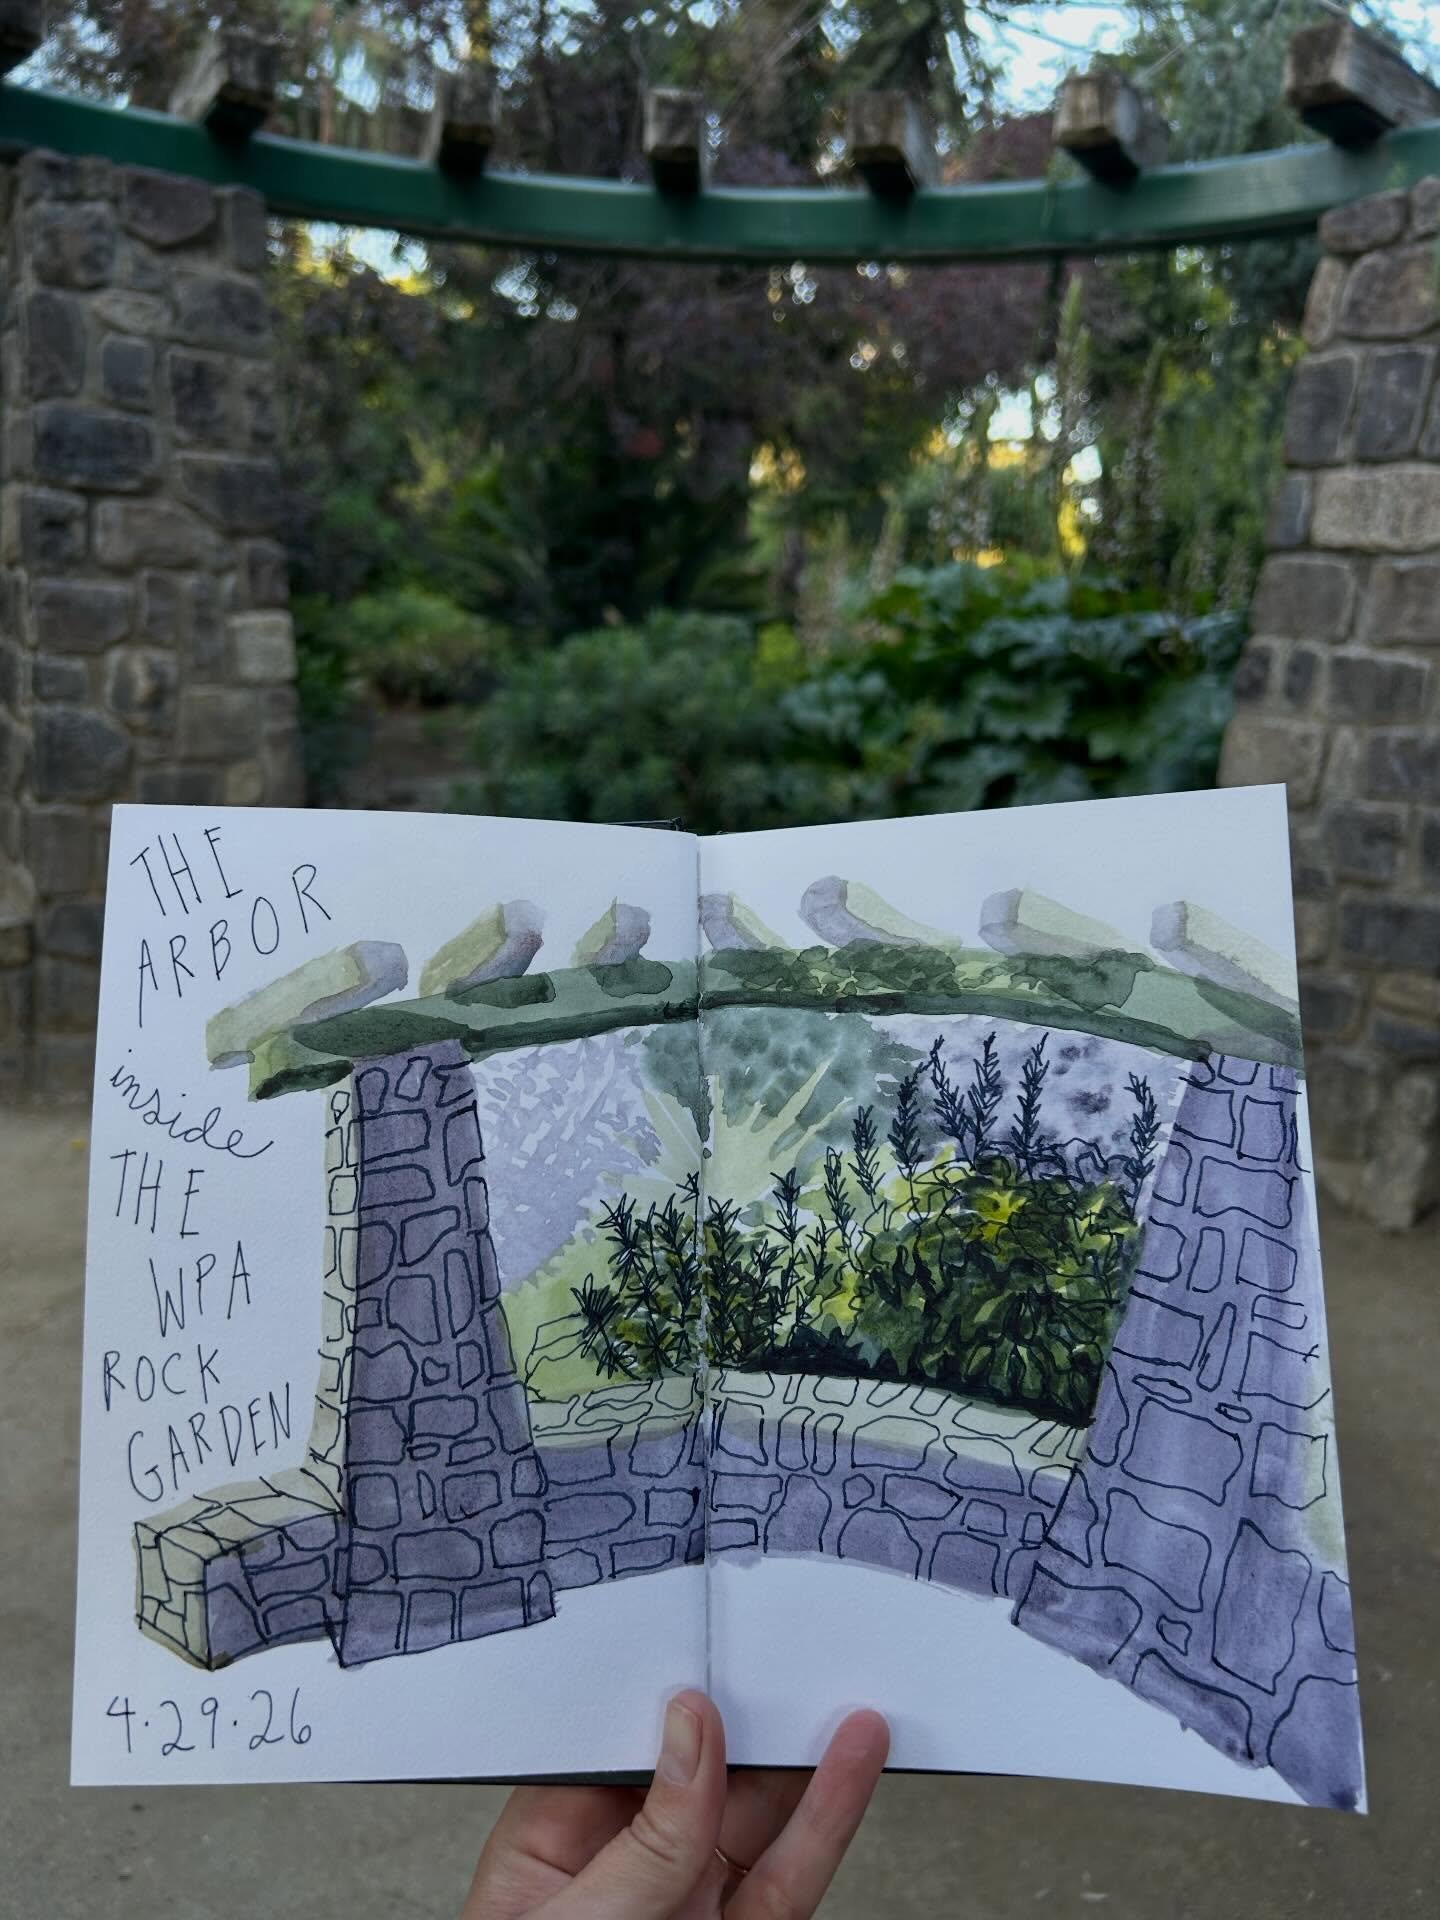 THE
ARBOR
inside
THE
WPA
ROCK
GARDEN
4.29.26